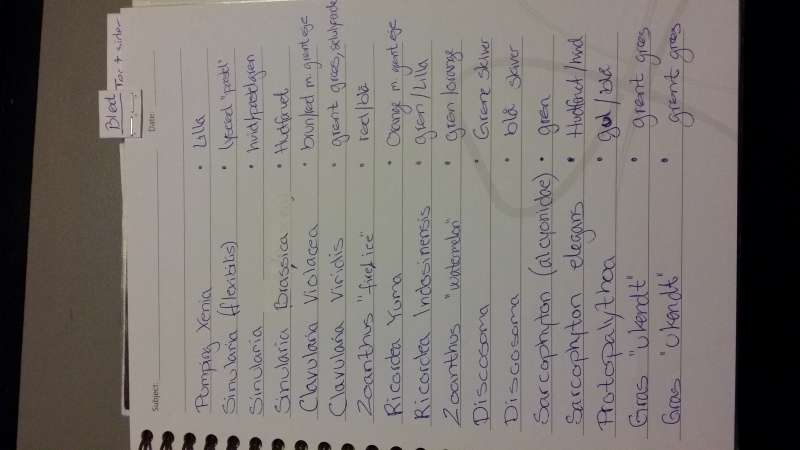 Bled
Tor + sider
Subject: Date:
Pumping Xenia • Lilla
Sinularia (flexibilis) • lyserød "pastel"
Sinularia • hvid/pastelgrøn
Sinularia Brassica • Hudfarvet
Clavularia Violacea • brun/rød m. grønt øje
Clavularia Viridis • grønt græs,
Zoanthus "fire/ice" • rød/blå
Ricordea Yuma • Orange m. grønt øje
Ricordea Indosinensis • grøn/Lilla
Zoanthus "watermelon" • grøn/orange
Discosoma • Grønne skiver
Discosoma • blå skiver
Sarcophyton (alcyonidae) • grøn
Sarcophyton elegans • Hudfarvet/hvid
Protopalythoa • gul/blå
Græs "Ukendt" • grønt græs
Græs "Ukendt" • grønt græs